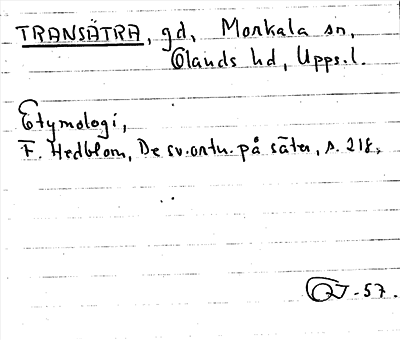 TRANSÄTRA, gd, Morkala sn,
Olands hd, Upps.l.
Etymologi,
F. Hedblom, De sv. ortn. på säter, s. 218.
-57.